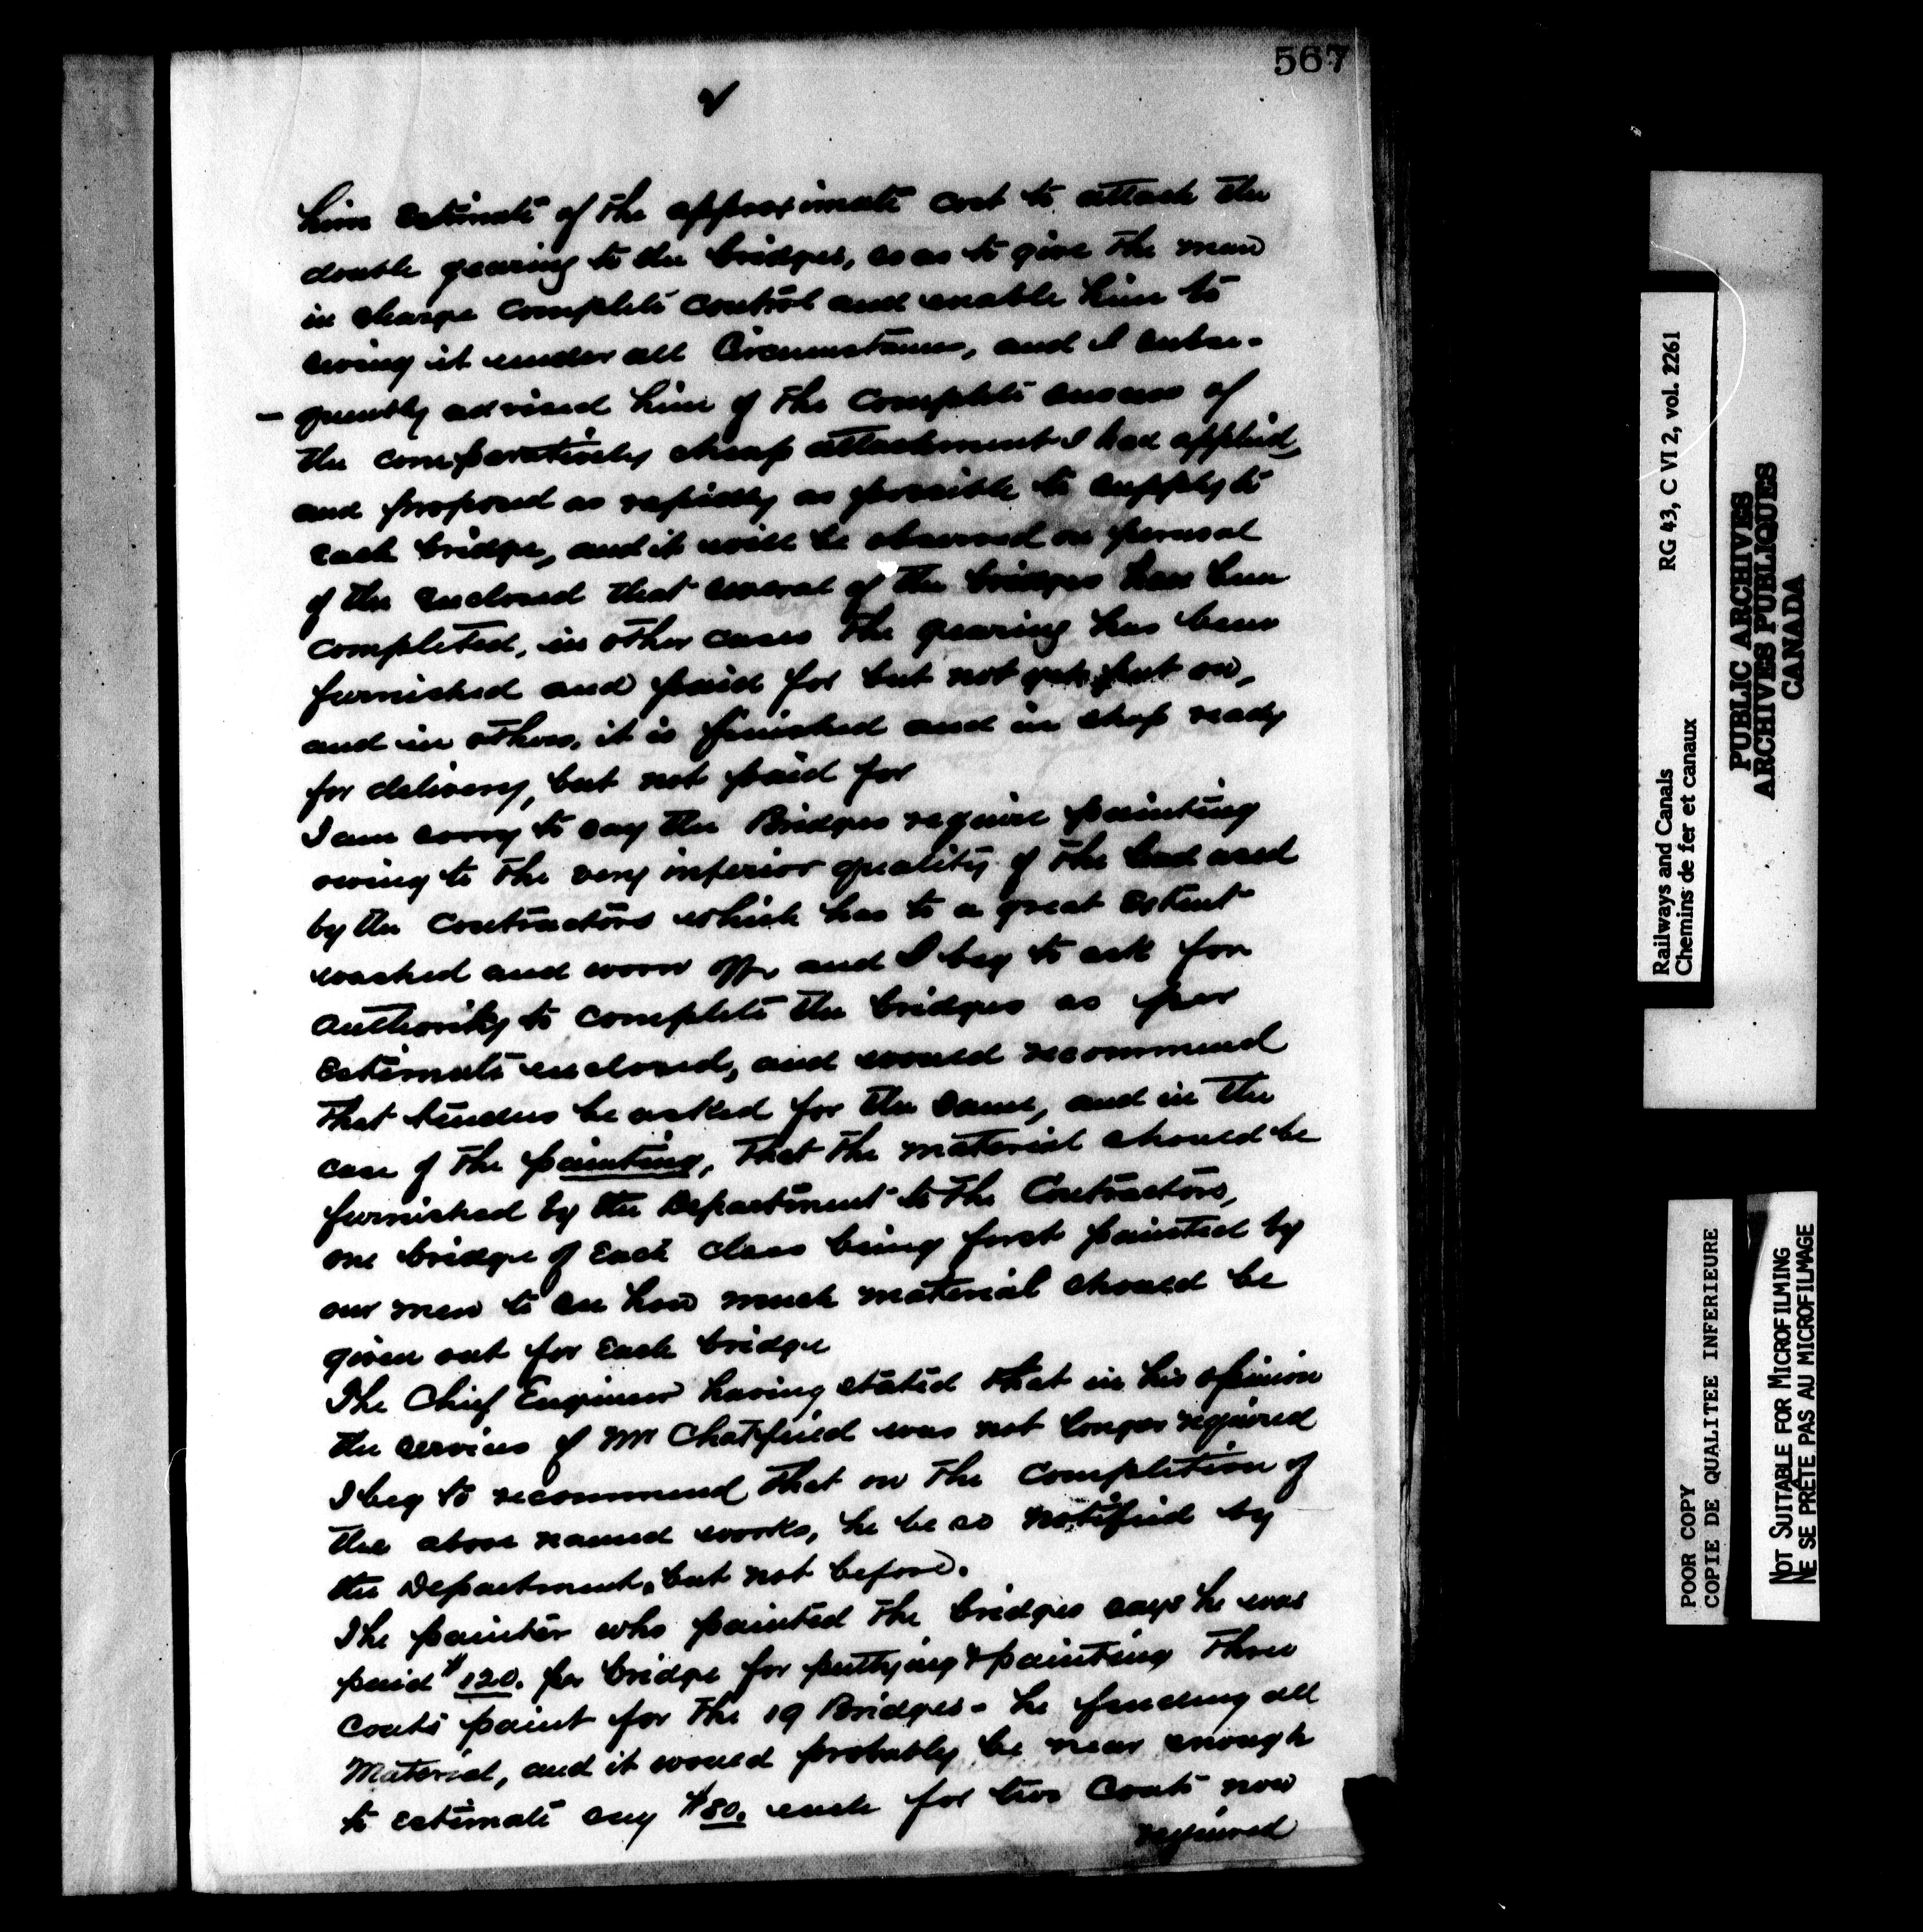 567
2
him Estimate of the approximate cost to attach the
double gearing to the bridges, so as to give the man
in charge complete control and enable him to
swing it under all Circumstances, and I subse-
- quently advised him of the complete success of
the comparatively cheap attachment I had applied,
and proposed as rapidly as possible to supply to
each bridge, and it will be observed on perusal
of the Enclosed that several of the bridges have been
completed, in other cases the gearing has been
furnished and paid for but not yet put on,
and in others, it is finished and in shop ready
for delivery, but not paid for
I am sorry to say the Bridges require painting
owing to the very inferior quality of the lead used
by the Contractors which has to a great Extent
washed and worn off, and I beg to ask for
authority to complete the bridges as per
Estimate enclosed, and would recommend
that tenders be asked for the same, and in the
case of the painting, that the material should be
furnished by the Department to the Contractors,
one bridge of Each class being first painted by
our men to see how much material should be
given out for Each bridge
The Chief Engineer having stated that in his opinion
the services of Mr Chatfield was not longer required
I beg to recommend that on the completion of
the above named works, he be so notified by
the Department, but not before.
The painter who painted the bridges says he was
paid $120. per bridge for puttying & painting three
coats paint for the 19 Bridges - he finding all
Material, and it would probably be near enough
to estimate say $80. each for two Coats now
required
Railways and Canals RG 43, C VI 2, vol. 2261
Chemins de fer et canaux
PUBLIC ARCHIVES
ARCHIVES PUBLIQUES
CANADA
POOR COPY
COPIE DE QUALITEE INFERIEURE
NOT SUITABLE FOR MICROFILMING
NE SE PRÊTE PAS AU MICROFILMAGE